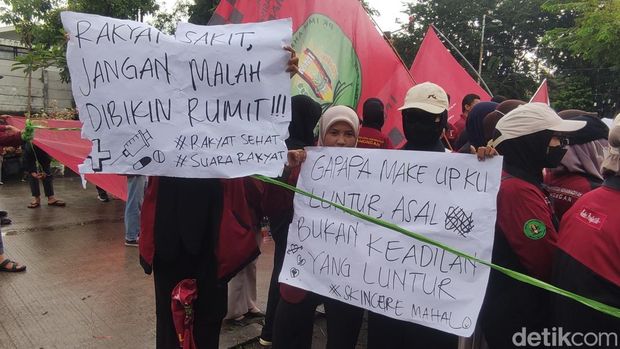 RAKYAT SAKIT,
JANGAN MALAH
DIBIKIN RUMIT!!!
#RAKYAT SEHAT
#SUARA RAKYAT
GAPAPA MAKE UP KU
LUNTUR, ASAL
BUKAN KEADILAN
YANG LUNTUR
#SKINCERE MAHAL
detikcom